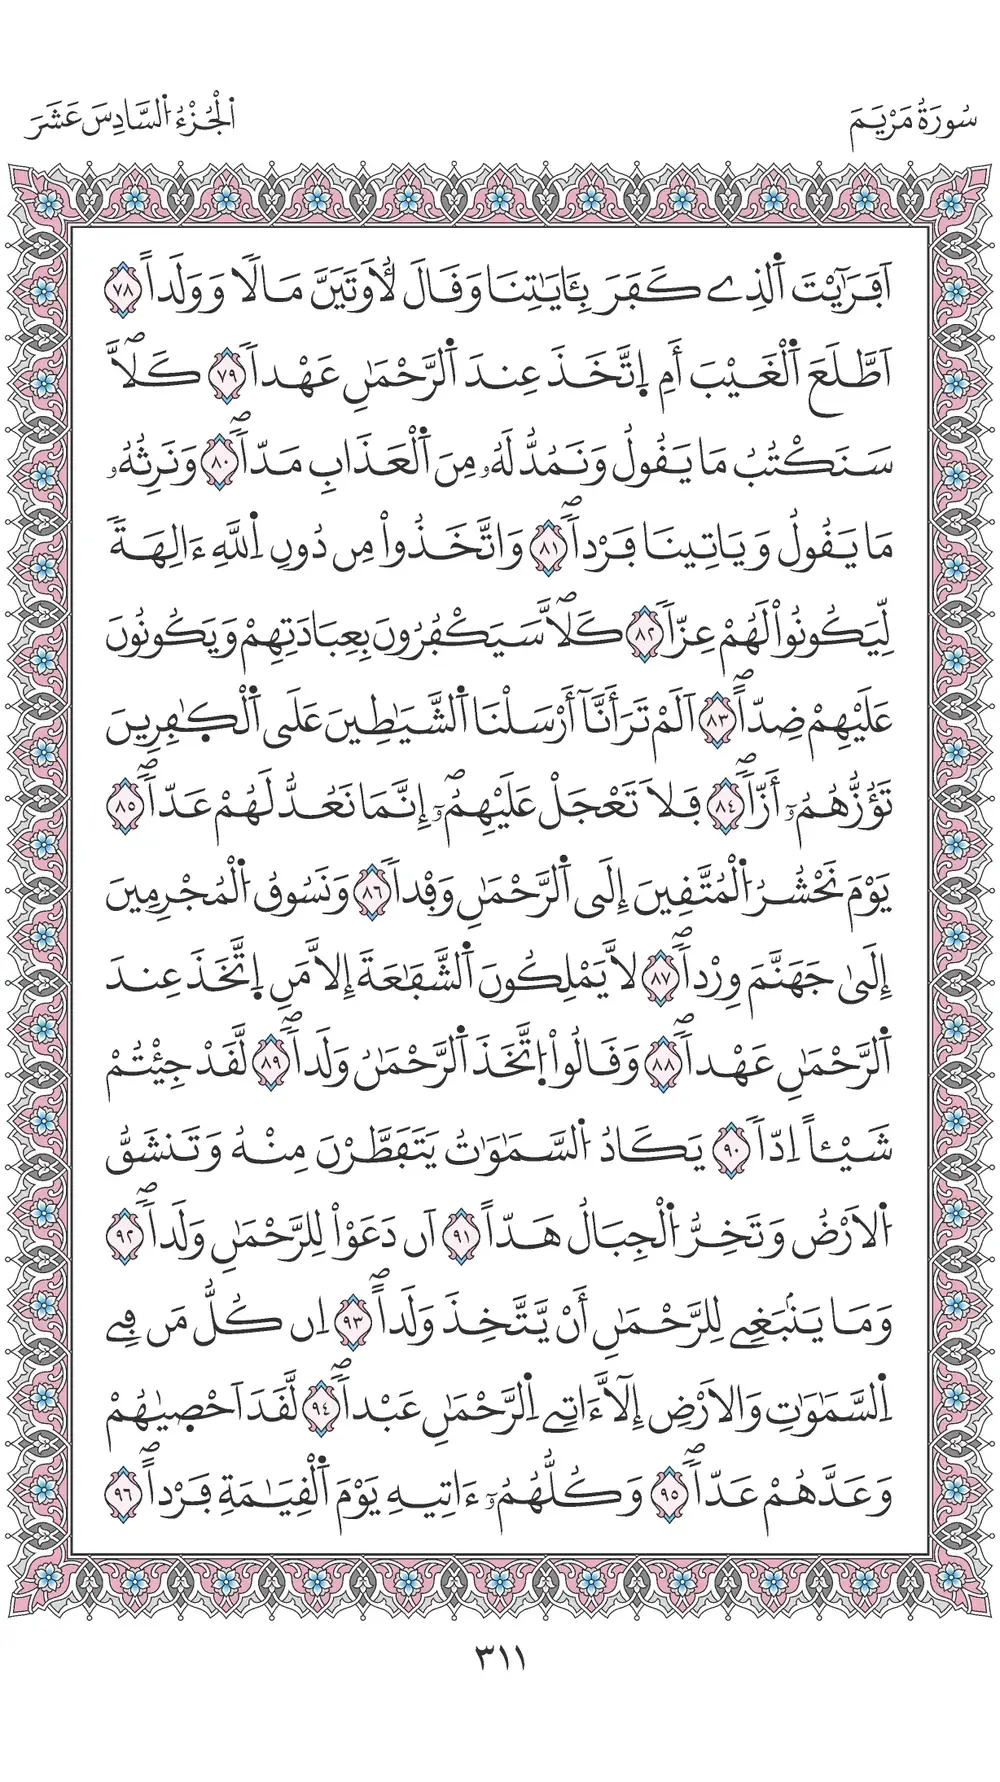 سُورَةُ مَرْيَمَ
اَلْجُزْءُ اَلسَّادِسَ عَشَرَ
اَفَرَٰٓيْتَ اَ۬لذِے كَفَرَ بِـَٔايَٰتِنَا وَقَالَ لَأُوتَيَنَّ مَالاٗ وَوَلَداًۖ ٧٨
اَطَّلَعَ اَ۬لْغَيْبَ أَمِ اِ۪تَّخَذَ عِندَ اَ۬لرَّحْمَٰنِ عَهْداٗ ٧٩ كَلَّاۖ
سَنَكْتُبُ مَا يَقُولُ وَنَمُدُّ لَهُۥ مِنَ اَ۬لْعَذَابِ مَدّاٗۖ ٨٠ وَنَرِثُهُۥ
مَا يَقُولُ وَيَاتِينَا فَرْداٗۖ ٨١ وَاتَّخَذُواْ مِن دُونِ اِ۬للَّهِ ءَالِهَةٗ
لِّيَكُونُواْ لَهُمْ عِزّاٗ ٨٢ كَلَّاۖ سَيَكْفُرُونَ بِعِبَادَتِهِمْ وَيَكُونُونَ
عَلَيْهِمْ ضِدّاًۖ ٨٣ اَلَمْ تَرَ أَنَّآ أَرْسَلْنَا اَ۬لشَّيَٰطِينَ عَلَى اَ۬لْكٰ۪فِرِينَ
تَؤُزُّهُمُۥٓ أَزّاٗۖ ٨٤ فَلَا تَعْجَلْ عَلَيْهِمُۥٓۖ إِنَّمَا نَعُدُّ لَهُمْ عَدّاٗۖ ٨٥
يَوْمَ نَحْشُرُ اُ۬لْمُتَّقِينَ إِلَى اَ۬لرَّحْمَٰنِ وَفْداٗ ٨٦ وَنَسُوقُ اُ۬لْمُجْرِمِينَ
إِلَىٰ جَهَنَّمَ وِرْداٗۖ ٨٧ لَّا يَمْلِكُونَ اَ۬لشَّفَٰعَةَ إِلَّا مَنِ اِ۪تَّخَذَ عِندَ
اَ۬لرَّحْمَٰنِ عَهْداٗۖ ٨٨ وَقَالُواْ اُ۪تَّخَذَ اَ۬لرَّحْمَٰنُ وَلَداٗۖ ٨٩ لَّقَدْ جِئْتُمْ
شَيْـٔاً اِدّاٗ ٩٠ يَكَادُ اُ۬لسَّمَٰوَٰتُ يَتَفَطَّرْنَ مِنْهُ وَتَنشَقُّ
اُ۬لَارْضُ وَتَخِرُّ اُ۬لْجِبَالُ هَدّاً ٩١ اَن دَعَوْاْ لِلرَّحْمَٰنِ وَلَداٗۖ ٩٢
وَمَا يَنۢبَغِے لِلرَّحْمَٰنِ أَنْ يَّتَّخِذَ وَلَداًۖ ٩٣ اِن كُلُّ مَن فِے
اِ۬لسَّمَٰوَٰتِ وَالَارْضِ إِلَّآ ءَاتِے اِ۬لرَّحْمَٰنِ عَبْداٗۖ ٩٤ لَّقَدَ اَحْص۪يٰهُمْ
وَعَدَّهُمْ عَدّاٗۖ ٩٥ وَكُلُّهُمُۥٓ ءَاتِيهِ يَوْمَ اَ۬لْقِيَٰمَةِ فَرْداًۖ ٩٦
٣١١